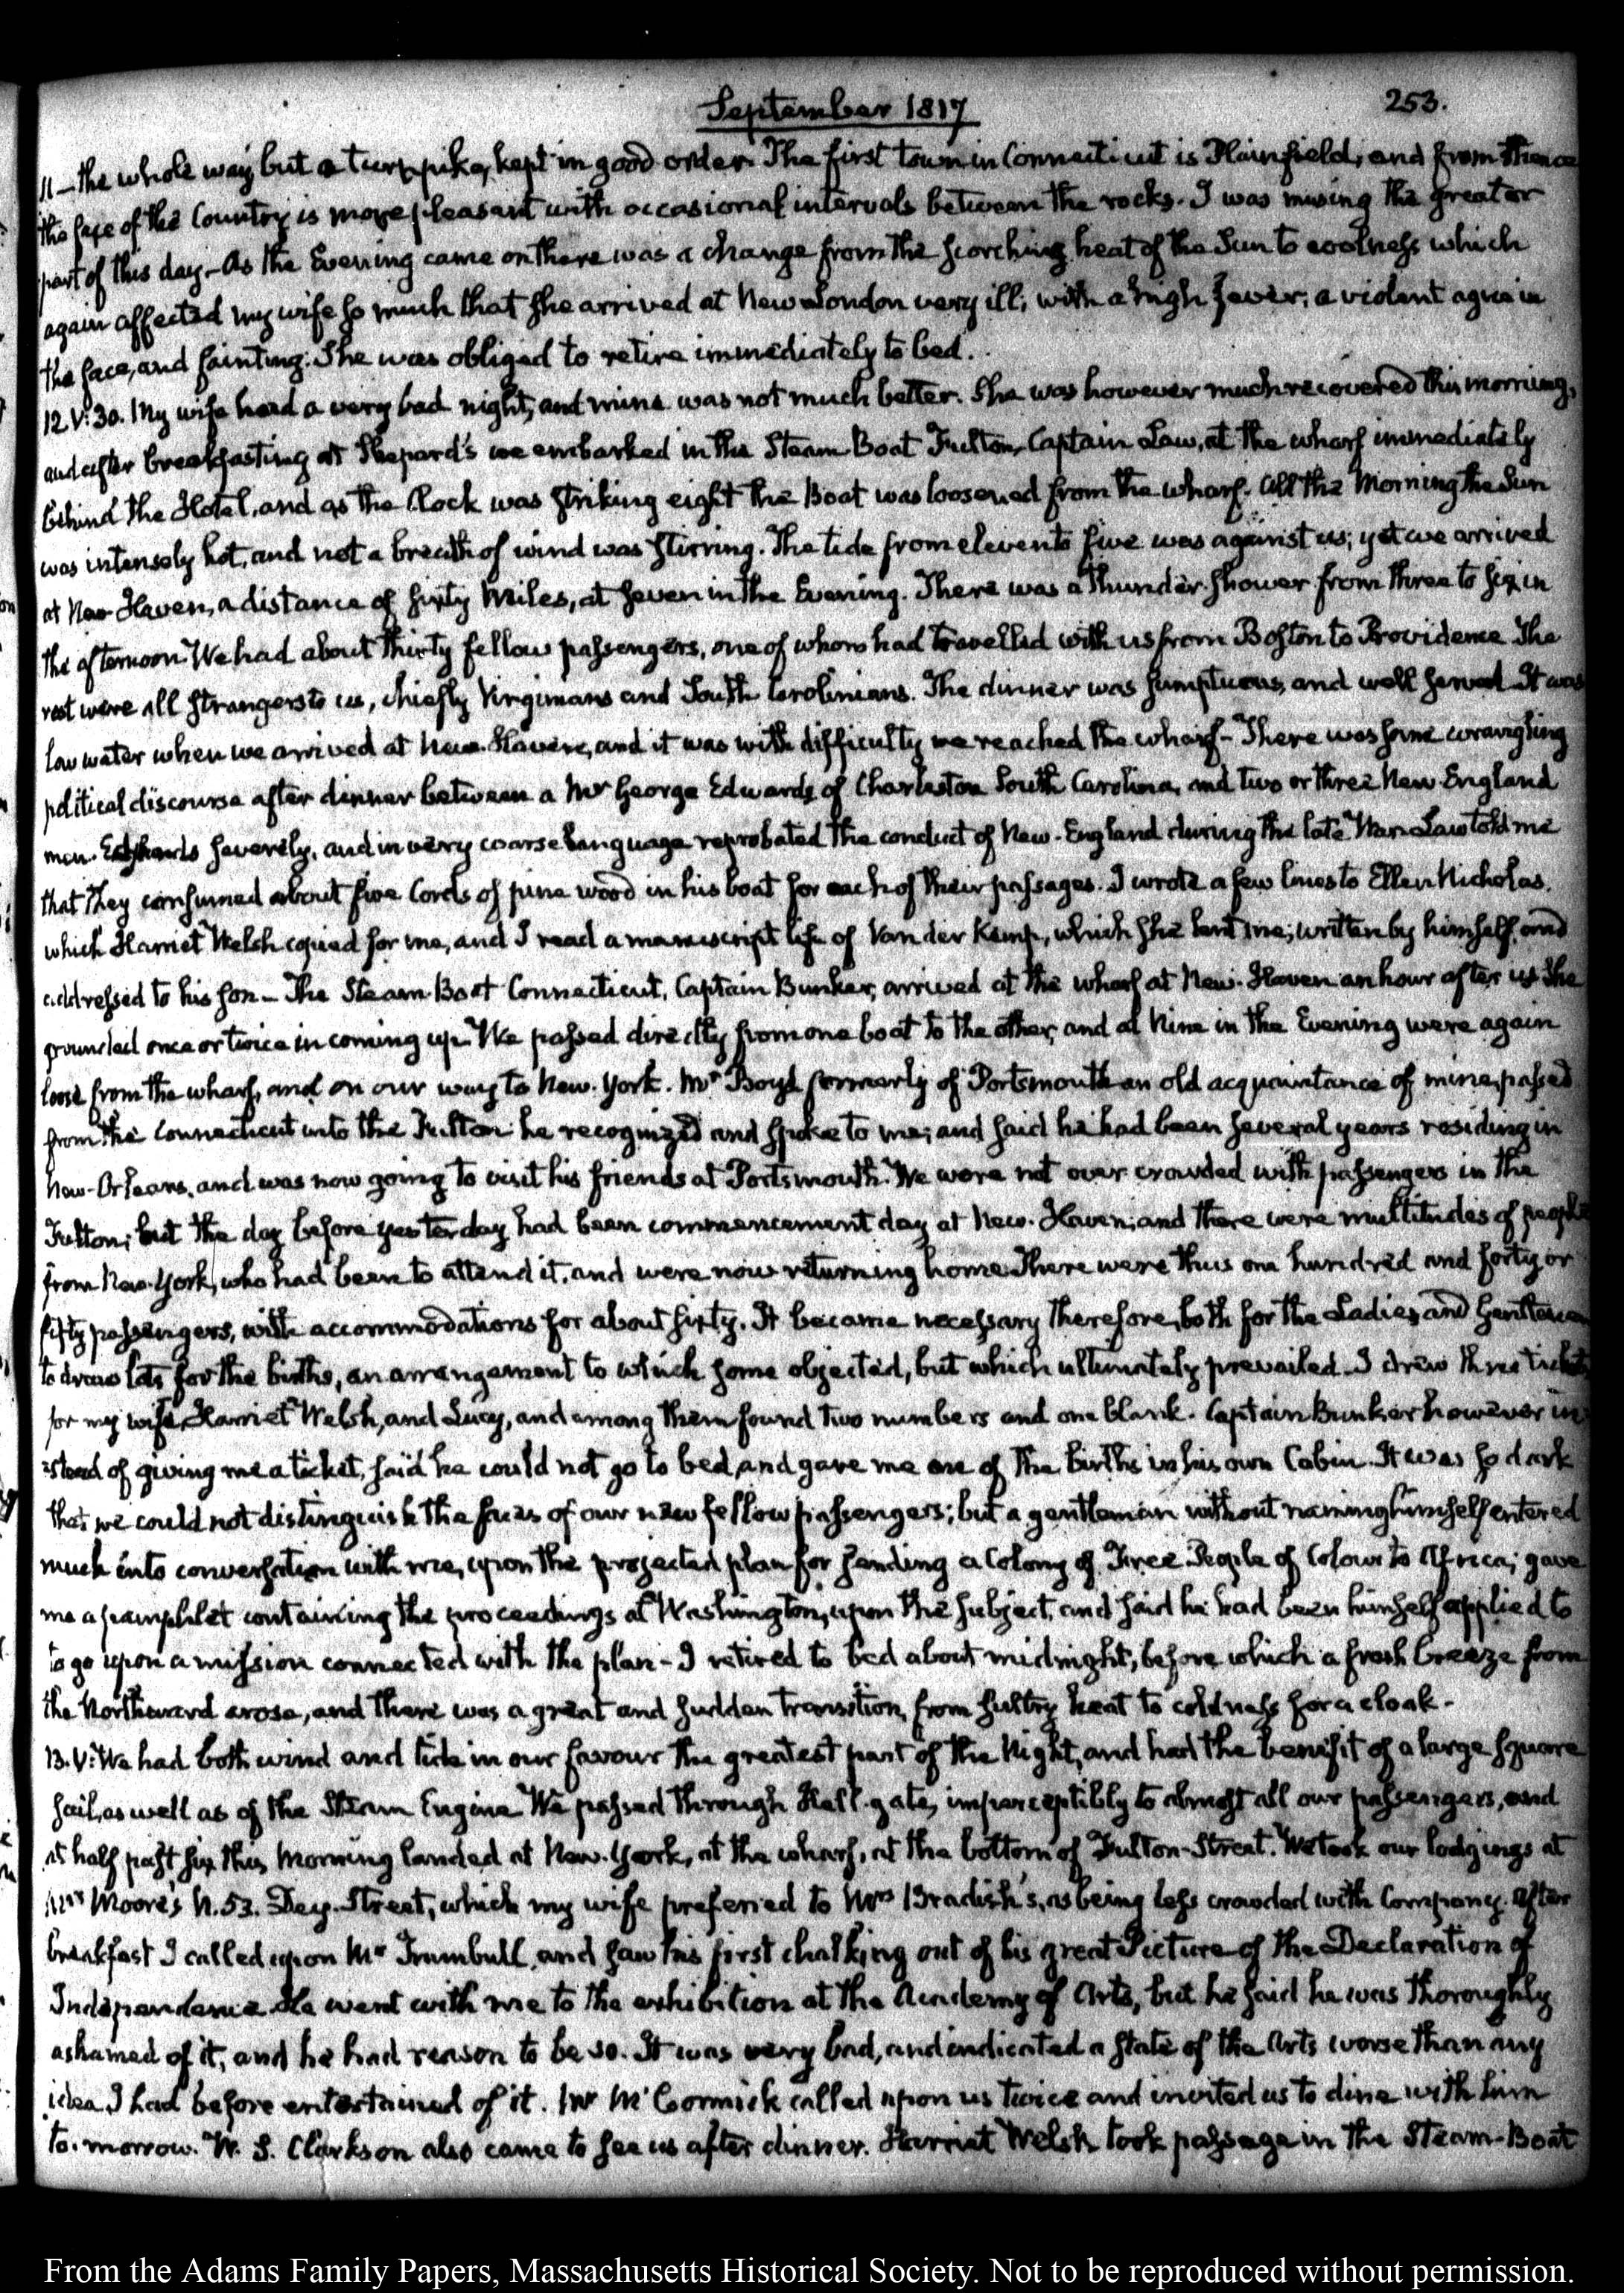 September 1817
253.
11 — the whole way but a turnpike, kept in good order. The first town in Connecticut is Plainfield; and from thence
the face of the Country is more pleasant with occasional intervals between the rocks. I was musing the greater
part of this day. As the Evening came on there was a change from the scorching heat of the Sun to coolness which
again affected my wife so much that she arrived at New London very ill; with a high fever; a violent ague in
the face, and fainting. She was obliged to retire immediately to bed.
12. V:30. My wife had a very bad night, and mine was not much better. She was however much recovered this morning,
and after breakfasting at Shepard's we embarked in the Steam Boat Fulton, Captain Law, at the wharf immediately
behind the Hotel, and as the Clock was striking eight the Boat was loosened from the wharf. All the Morning the Sun
was intensely hot, and not a breath of wind was stirring. The tide from eleven to five was against us; yet we arrived
at New-Haven, a distance of sixty Miles, at seven in the Evening. There was a thunder-shower from three to six in
the afternoon. We had about thirty fellow passengers, one of whom had travelled with us from Boston to Providence. The
rest were all strangers to us, chiefly Virginians and South Carolinians. The dinner was sumptuous, and well served. It was
low water when we arrived at New-Haven, and it was with difficulty we reached the wharf — There was some wrangling
political discourse after dinner between a Mr George Edwards of Charleston South Carolina, and two or three New England
men. Edwards severely, and in very coarse language reprobated the conduct of New-England during the late War. Law told me
that they consumed about five Cords of pine wood in his boat for each of their passages. I wrote a few lines to Ellen Nicholas,
which Harriet Welsh copied for me, and I read a manuscript life of Van der Kemp, which she lent me; written by himself, and
addressed to his son — The Steam-Boat Connecticut, Captain Bunker, arrived at the wharf at New-Haven an hour after us. She
grounded once or twice in coming up. We passed directly from one boat to the other, and at Nine in the Evening were again
loose from the wharf, and on our way to New-York. Mr Boyd formerly of Portsmouth an old acquaintance of mine, passed
from the Connecticut into the Fulton: he recognized and spoke to me; and said he had been several years residing in
New-Orleans, and was now going to visit his friends at Portsmouth. We were not over crowded with passengers in the
Fulton; but the day before yesterday had been commencement day at New-Haven; and there were multitudes of people
from New-York, who had been to attend it, and were now returning home. There were thus one hundred and forty or
fifty passengers, with accommodations for about sixty. It became necessary therefore, both for the Ladies and Gentlemen
to draw lots for the births, an arrangement to which some objected, but which ultimately prevailed. I drew three tickets
for my wife, Harriet Welsh, and Lucy, and among them found two numbers and one blank. Captain Bunker however in-
stead of giving me a ticket, said he could not go to bed, and gave me one of the births in his own Cabin. It was so dark
that we could not distinguish the faces of our new fellow passengers; but a gentleman without naming himself entered
much into conversation with me, upon the projected plan for sending a Colony of Free People of Colour to Africa; gave
me a pamphlet containing the proceedings at Washington, upon the subject, and said he had been himself applied to
to go upon a mission connected with the plan — I retired to bed about midnight, before which a fresh breeze from
the Northward arose, and there was a great and sudden transition, from sultry heat to coldness for a cloak.
13. V: We had both wind and tide in our favour the greatest part of the Night, and had the benefit of a large square
sail, as well as of the Steam Engine. We passed through Hell-gate, imperceptibly to almost all our passengers, and
at half past six this Morning landed at New-York, at the wharf, at the bottom of Fulton-Street. We took our lodgings at
Mrs Moore's N. 53. Dey-Street, which my wife preferred to Mrs Bradish's, as being less crowded with Company. After
breakfast I called upon Mr Trumbull, and saw his first chalking out of his great Picture of the Declaration of
Independence. He went with me to the exhibition at the Academy of Arts, but he said he was thoroughly
ashamed of it, and he had reason to be so. It was very bad, and indicated a state of the Arts worse than any
idea I had before entertained of it. Mr McCormick called upon us twice and invited us to dine with him
to-morrow. W. S. Clarkson also came to see us after dinner. Harriet Welsh took passage in the Steam-Boat
From the Adams Family Papers, Massachusetts Historical Society. Not to be reproduced without permission.